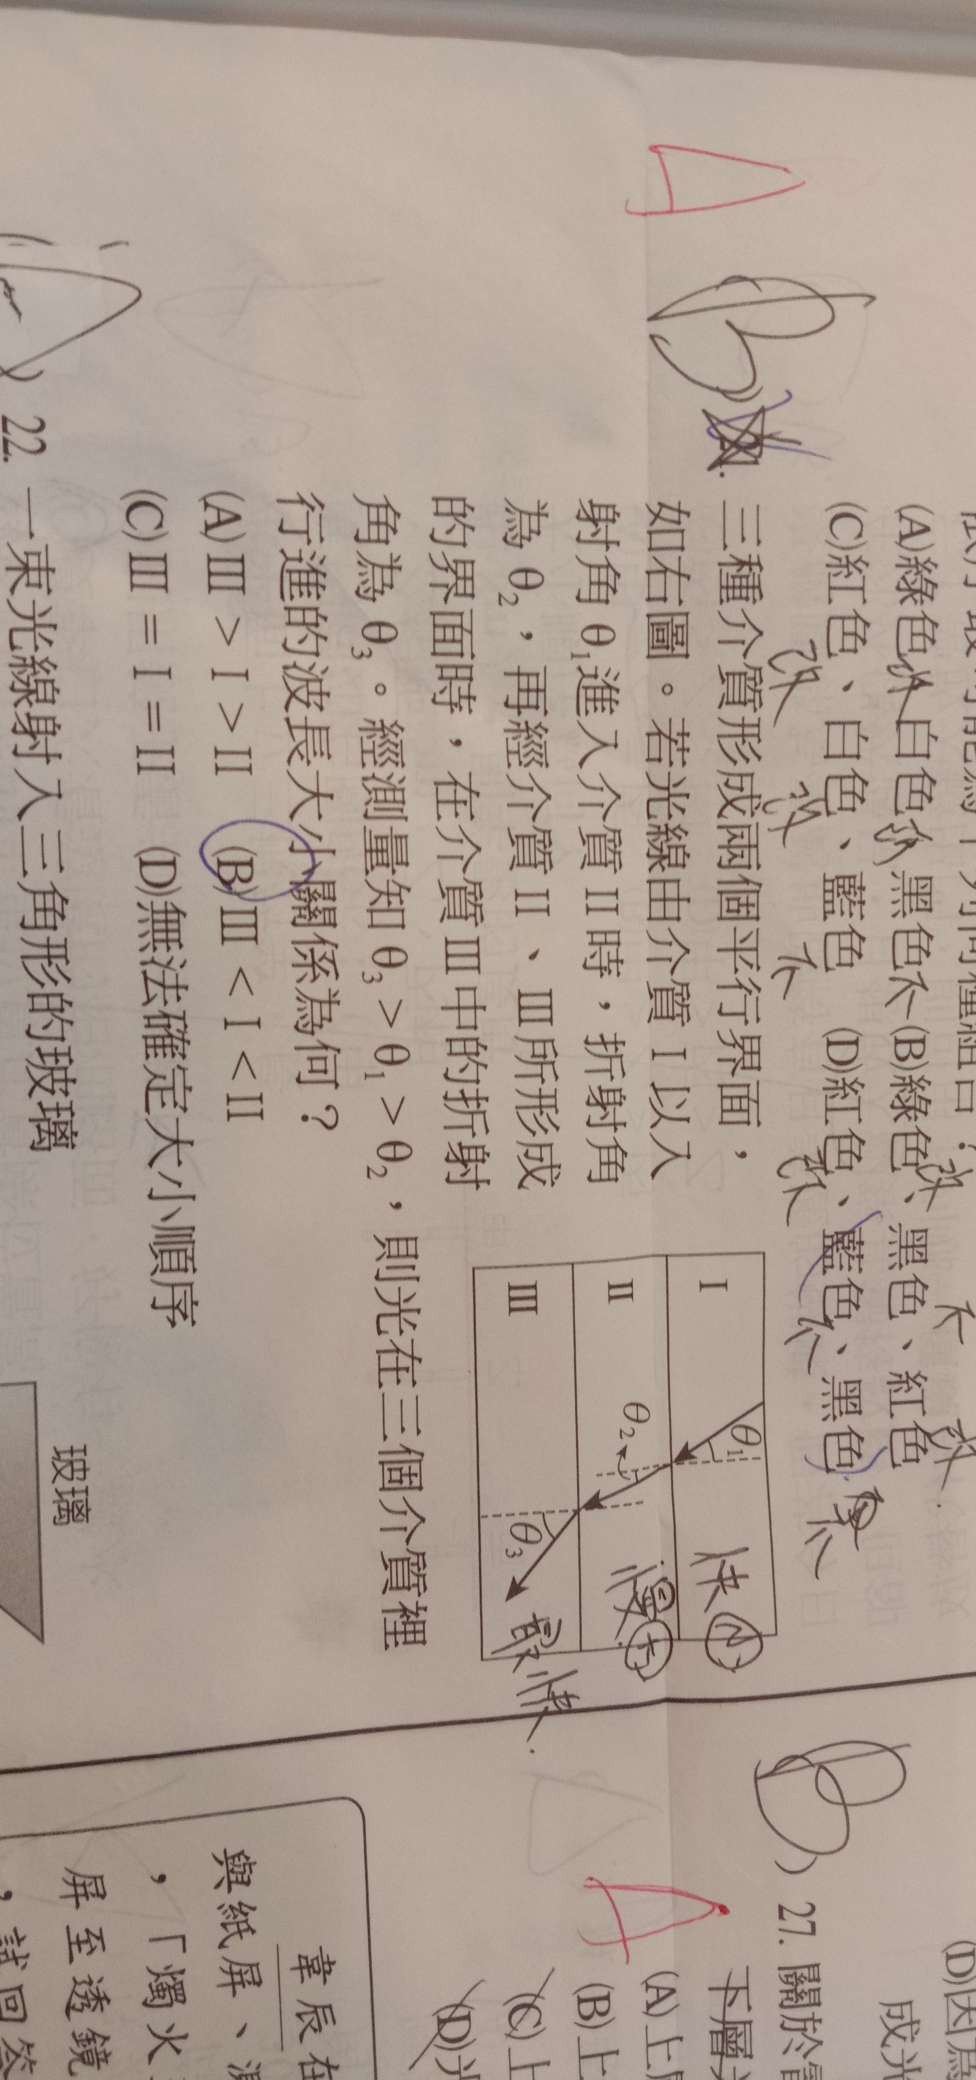 (A)綠色、白色、黑色 (B)綠色、黑色、紅色
改 不 改
(C)紅色、白色、藍色 (D)紅色、藍色、黑色
改 改 不 改 不 不
A
(B) 21. 三種介質形成兩個平行界面，
如右圖。若光線由介質 I 以入
射角 θ₁進入介質 II 時，折射角
為 θ₂，再經介質 II 、III 所形成
的界面時，在介質 III 中的折射
角為 θ₃。經測量知 θ₃ > θ₁ > θ₂，則光在三個介質裡
行進的波長大小關係為何？
(A) III > I > II (B) III < I < II
(C) III = I = II (D)無法確定大小順序
I θ₁ 快 小
II θ₂ 慢
III θ₃ 最快
22. 一束光線射入三角形的玻璃
玻璃
(D)因為
成光
B ) 27. 關於
下層
A
(A)上
(B)上
(C)上
(D)光
韋辰在
與紙屏、
，「燭火
屏至透鏡
，試回答